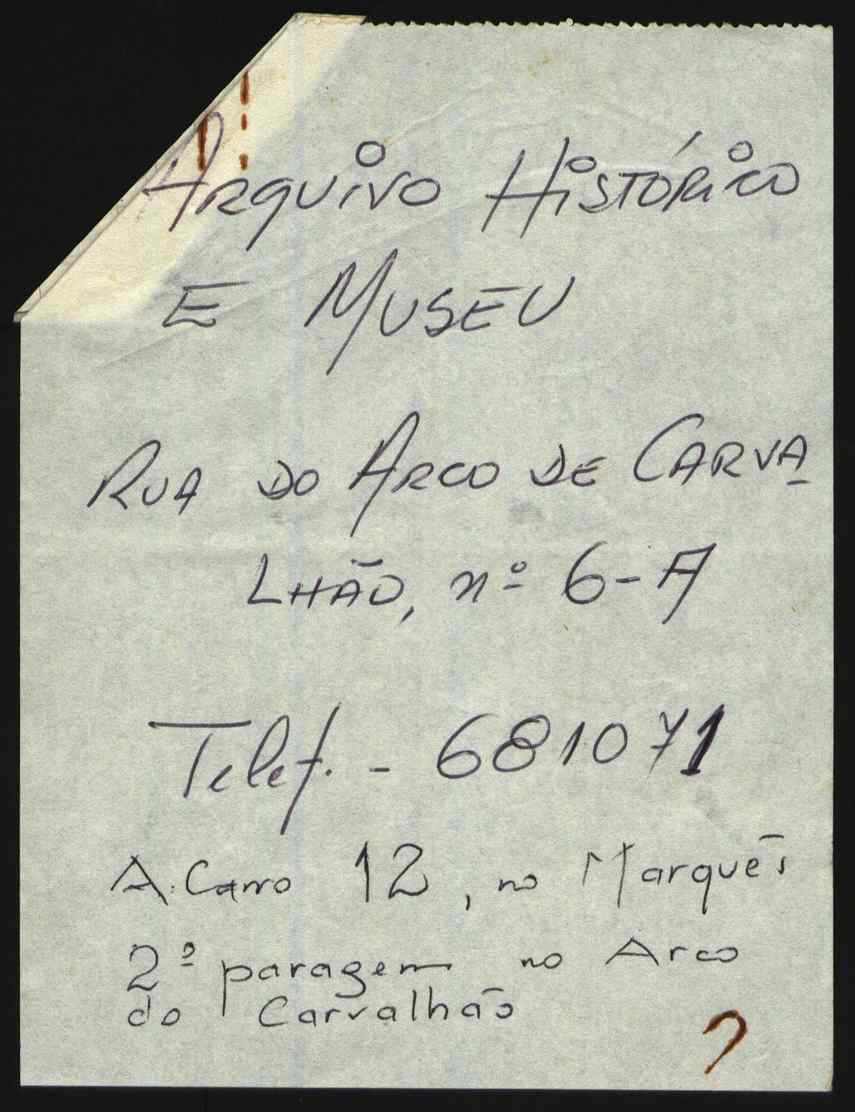 ARQUIVO HISTÓRICO
E MUSEU
RUA DO ARCO DE CARVA
LHÃO, nº 6-A
Telef. - 681071
A. Carro 12, no Marquês
2ª paragem no Arco
do Carvalhão
?